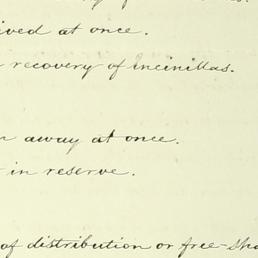 ived at once.
recovery of incinillas.
away at once.
in reserve.
of distribution or free-sha